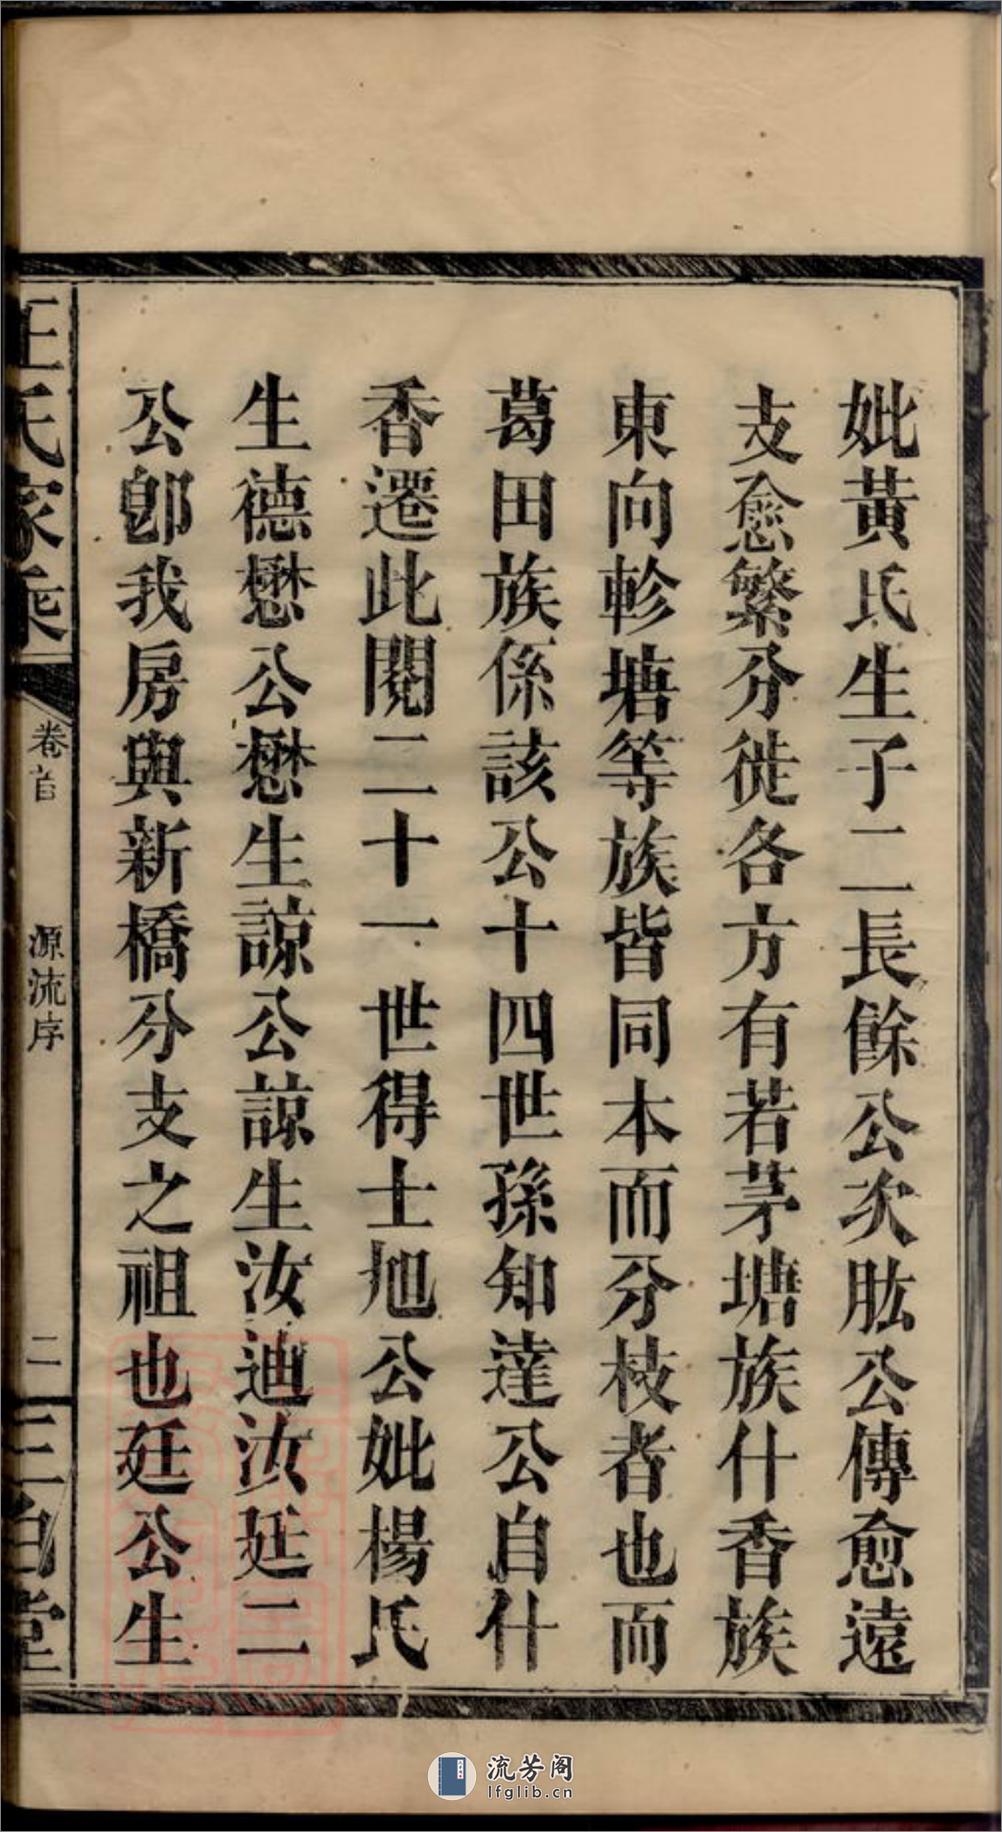 妣黃氏生子二長餘公次肱公傳愈遠
支愈繁分徙各方有若茅塘族什香族
東向軫塘等族皆同本而分枝者也而
葛田族係該公十四世孫知達公自什
香遷此閱二十一世得士旭公妣楊氏
生德懋公懋生諒公諒生汝迪汝廷二
公卽我房與新橋分支之祖也廷公生
王氏家乘
卷首
源流序
二
三白堂
流芳阁
lfglib.cn